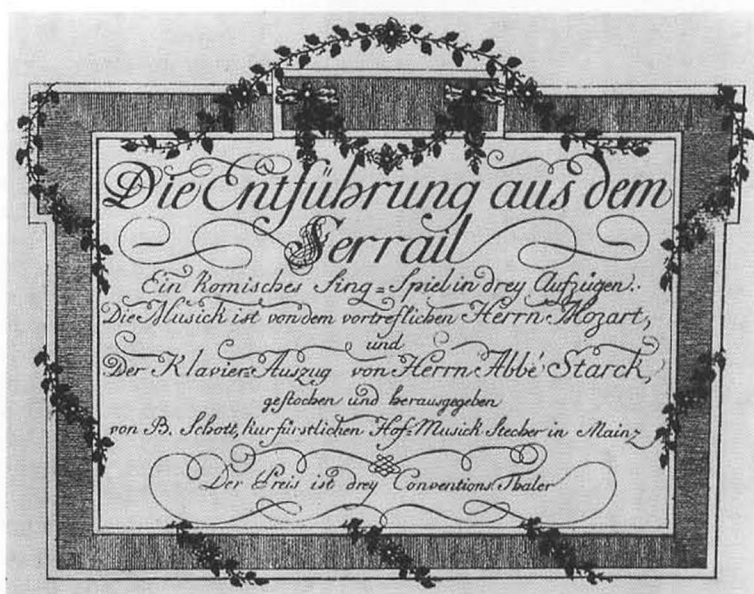 Die Entführung aus dem
Serrail
Ein Komisches Sing=Spiel in drey Aufzügen.
Die Musick ist von dem vortreflichen Herrn Mozart,
und
Der Klavier=Auszug von Herrn Abbé Starck,
gestochen und herausgegeben
von B. Schott, kurfürstlichen Hof=Musick Stecher in Mainz
Der Preis ist drey Conventions Thaler